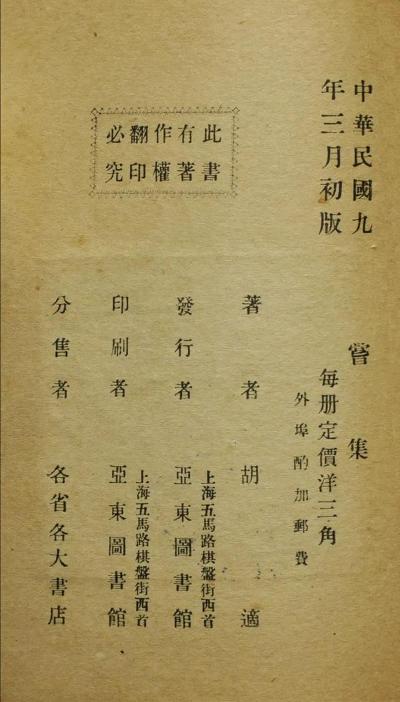 中華民國九
年三月初版
嘗集
每册定價洋三角
外埠酌加郵費
此書
有著
作權
翻印
必究
著者胡適
上海五馬路棋盤街西首
發行者亞東圖書館
上海五馬路棋盤街西首
印刷者亞東圖書館
分售者各省各大書店